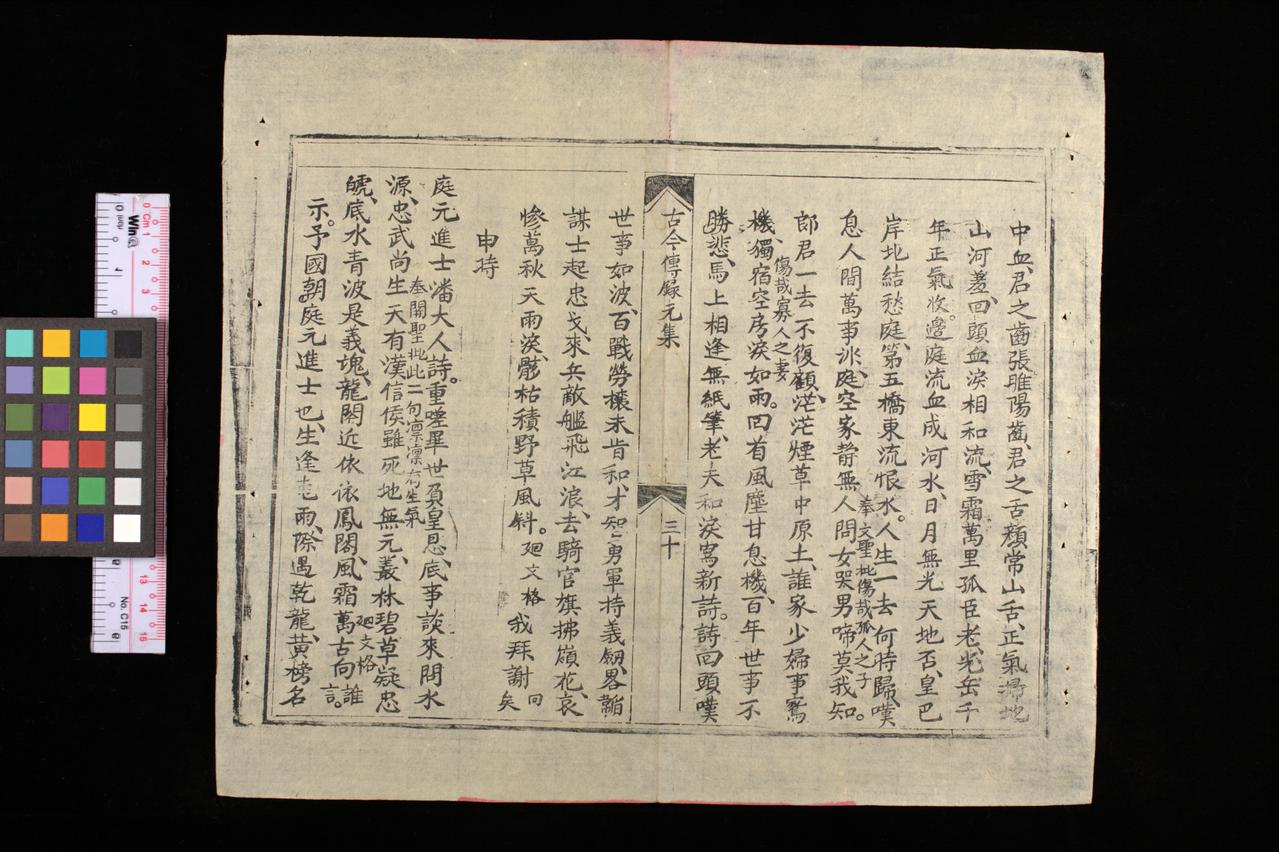 中血、君之齒張睢陽齒、君之舌顏常山舌、正氣掃地
山河羞、回頭血淚相和流、雪霜萬里孤臣老、光岳千
年正氣收。邊庭流血成河水、日月無光天地否、皇巴
岸地結愁庭、第五橋東流恨水。奉文聖批傷哉孤人之子人生一去何時歸、嘆
息人間萬事非、庭空家静無人問、女哭男啼莫我知。
郎君一去不復顧、茫茫煙草中原土、誰家少婦事鴛
機、獨宿空房淚如雨。傷哉寡人之妻回首風塵甘息機、百年世事不
勝悲、馬上相逢無紙筆、老夫和淚寫新詩。詩回頭嘆
古今傳錄元集
三十
世事如波、百戰勞攘未肯和、才知勇軍持義劒、畧韜
謀士起忠戈、來兵敵艦飛江浪、去騎官旗拂嶺花、哀
慘萬秋天雨淚、骸枯積野草風斜。廻文格 我拜謝 回矣
申時
庭元進士潘大人詩。重嗟畢世負皇恩、底事談來問水
源、忠武尚生天有漢、信侯雖死地無元、奉關聖批此二句凛凛有生氣叢林碧草凝忠
號、底水青波是義塊、龍闕近依依鳳閣、風霜萬古向誰言。廻文格
示。予國朝庭元進士也、生逢雨、際遇乾龍、黃榜名